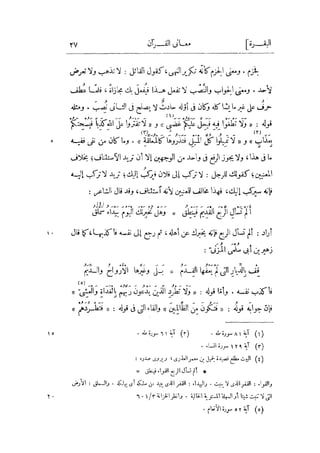 البقرة] معانى القرآن ٢٧
بجزم . ومعنى الجزم كأنه تكرير النهى ، كقول القائل : لا تذهب ولا تعرض
لأحد . ومعنى الجواب والنصب لا تفعل هذا فيُفعلَ بك مجازاة ، فلما عُطف
حرفٌ على غير ما يشاكله وكان فى أوّله حادثٌ لا يصلح فى الثانى نُصب . ومثله
قوله : « ولا تَطْغَوْا فيه فَيَحِلَّ عَلَيْكُمْ غَضَبِى » و « لا تَفْتَرُوا على اللهِ كَذِبًا فَيُسْحِتَكُمْ
بِعَذَابٍ » و « لا تَمِيلُوا كُلَّ المَيْلِ فَتَذَرُوهَا كَالمُعَلَّقَةِ » . وما كان من نفى ففيه
ما فى هذا ، ولا يجوز الرفع فى واحد من الوجهين إلا أن تريد الاستئناف ؛ بخلاف
المعنيين ؛ كقولك للرجل : لا تركب إلى فلان فيركبَ إليك ؛ تريد لا تركب إليه
فإنه سيركب إليك ، فهذا مخالف للمعنيين لأنه استئناف ، وقد قال الشاعر :
ألم تسأل الربع القديم فينطق * وهل تخبرنك اليوم بيداء سملق
أراد : ألم تسأل الربع فإنه يخبرك عن أهله ، ثم رجع إلى نفسه فأكذبها ، كما قال ١٠
زهير بن أبى سلمى المزنىّ :
قف بالديار التى لم يعفها القدم * بلى وغيّرها الأرواح والديم
فأكذب نفسه . وأما قوله : « ولا تَطْرُدِ الَّذِينَ يَدْعُونَ رَبَّهُمْ بِالغَدَاةِ والعَشِىِّ » (٥)
فإن جوابه قوله : « فَتَكُونَ مِنَ الظَّالِمِينَ » والفاء التى فى قوله : « فَتَطْرُدَهُمْ »
(١) آية ٨١ سورة طه . (٢) آية ٦١ سورة طه . ١٥
(٣) آية ١٢٩ سورة النساء .
(٤) البيت مطلع قصيدة لجميل بن معمر العذرى ، ويروى صدره :
* ألم تسأل الربع القواء فينطق *
والقواء : القفر الذى لا ينبت . والبيداء : القفر الذى يبيد من سلكه أى يهلكه . والسملق : الأرض
التى لا تنبت شيئا أو السهلة المستوية الخالية . وانظر الخزانة ٣/٦٠١ ٢٠
(٥) آية ٥٢ سورة الأنعام .